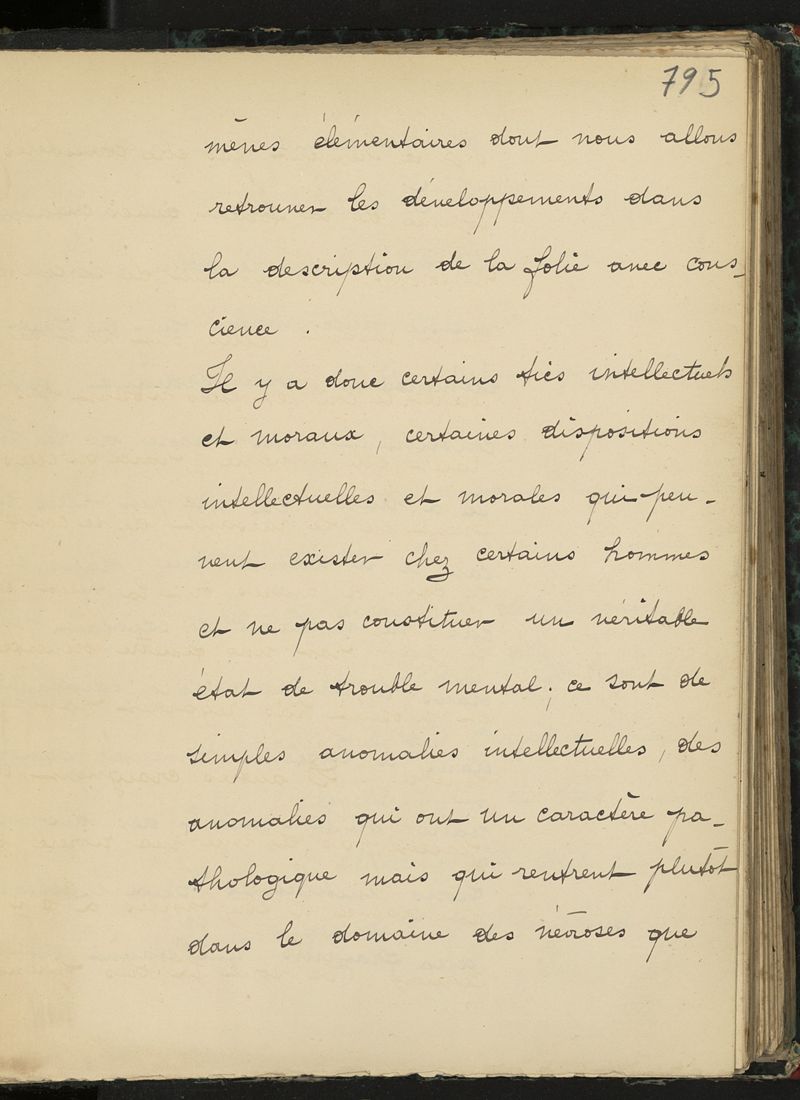 795
mènes élémentaires dont nous allons
retrouver les développements dans
la description de la folie avec cons-
cience .
Il y a donc certains tics intellectuels
et moraux, certaines dispositions
intellectuelles et morales qui peu-
vent exister chez certains hommes
et ne pas constituer un véritable
état de trouble mental; ce sont de
simples anomalies intellectuelles, des
anomalies qui ont un caractère pa-
thologique mais qui rentrent plutôt
dans le domaine des névroses que